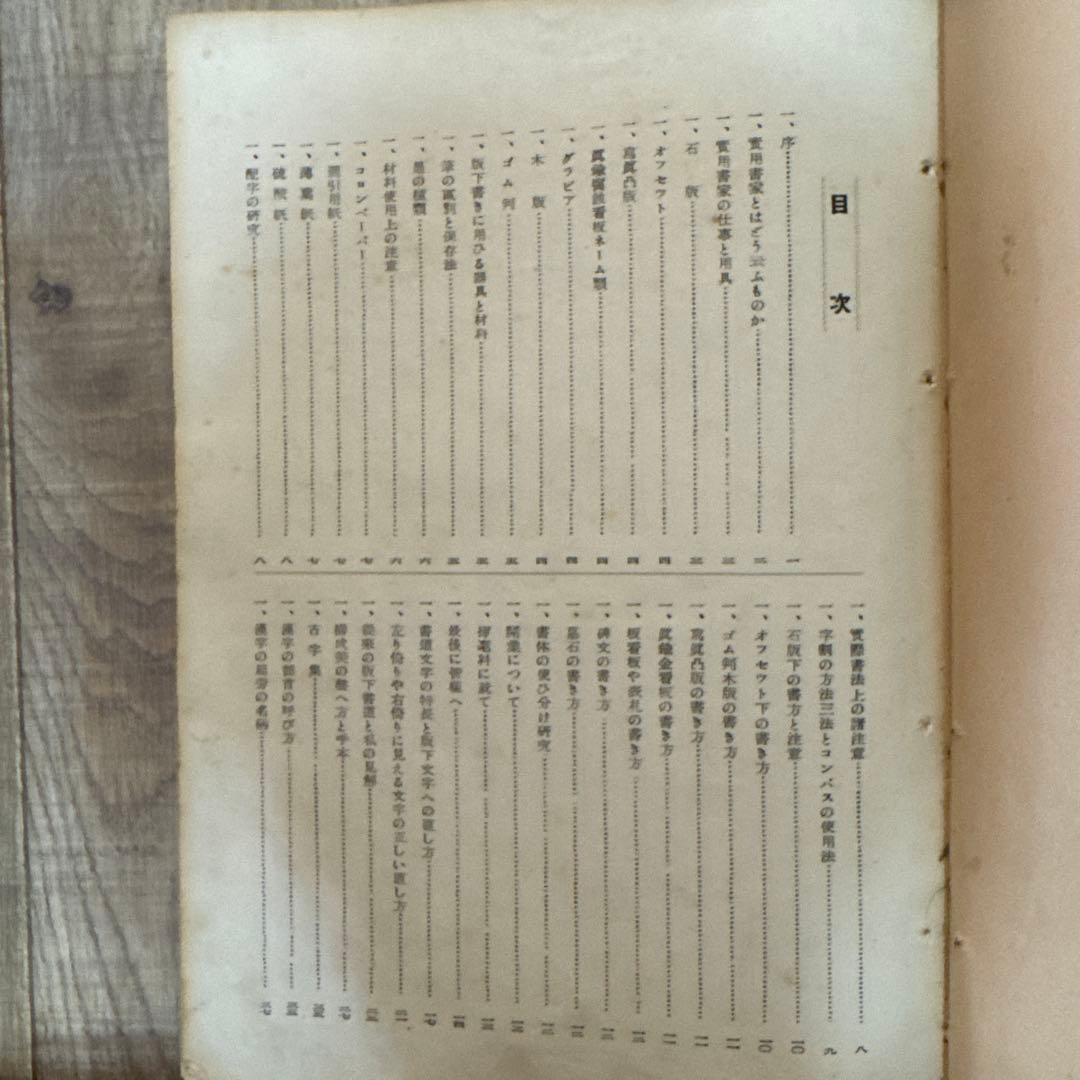 目次
一、序……一
一、實用書家とはどう云ふものか……二
一、實用書家の仕事と用具……三
一、石版……三
一、オフセツト……四
一、寫眞凸版……四
一、眞鍮腐蝕看板ネーム類……四
一、グラビア……四
一、木版……四
一、ゴム判……五
一、版下書きに用ひる器具と材料……五
一、筆の區別と保存法……五
一、墨の種類……六
一、材料使用上の注意……六
一、コロンペーパー……七
一、罫引用紙……七
一、薄葉紙……七
一、硫酸紙……八
一、配字の研究……八
一、實際書法上の諸注意……八
一、字割の方法三法とコンパスの使用法……九
一、石版下の書方と注意……一〇
一、オフセツト下の書き方……一〇
一、ゴム判木版の書き方……一一
一、寫眞凸版の書き方……一一
一、眞鍮金看板の書き方……一一
一、板看板や表札の書き方……一二
一、碑文の書き方……一二
一、墓石の書き方……一二
一、書体の使ひ分け研究……一二
一、開業について……一三
一、揮毫料に就て……一三
一、最後に皆樣へ……一四
一、書道文字の特長と版下文字への直し方……一七
一、左り倚りや右倚りに見える文字の正しい直し方……二一
一、從來の版下書道と私の見解……
一、構成美の整へ方と手本……
一、古字集……
一、漢字の部首の呼び方……
一、漢字の扁旁の名稱……